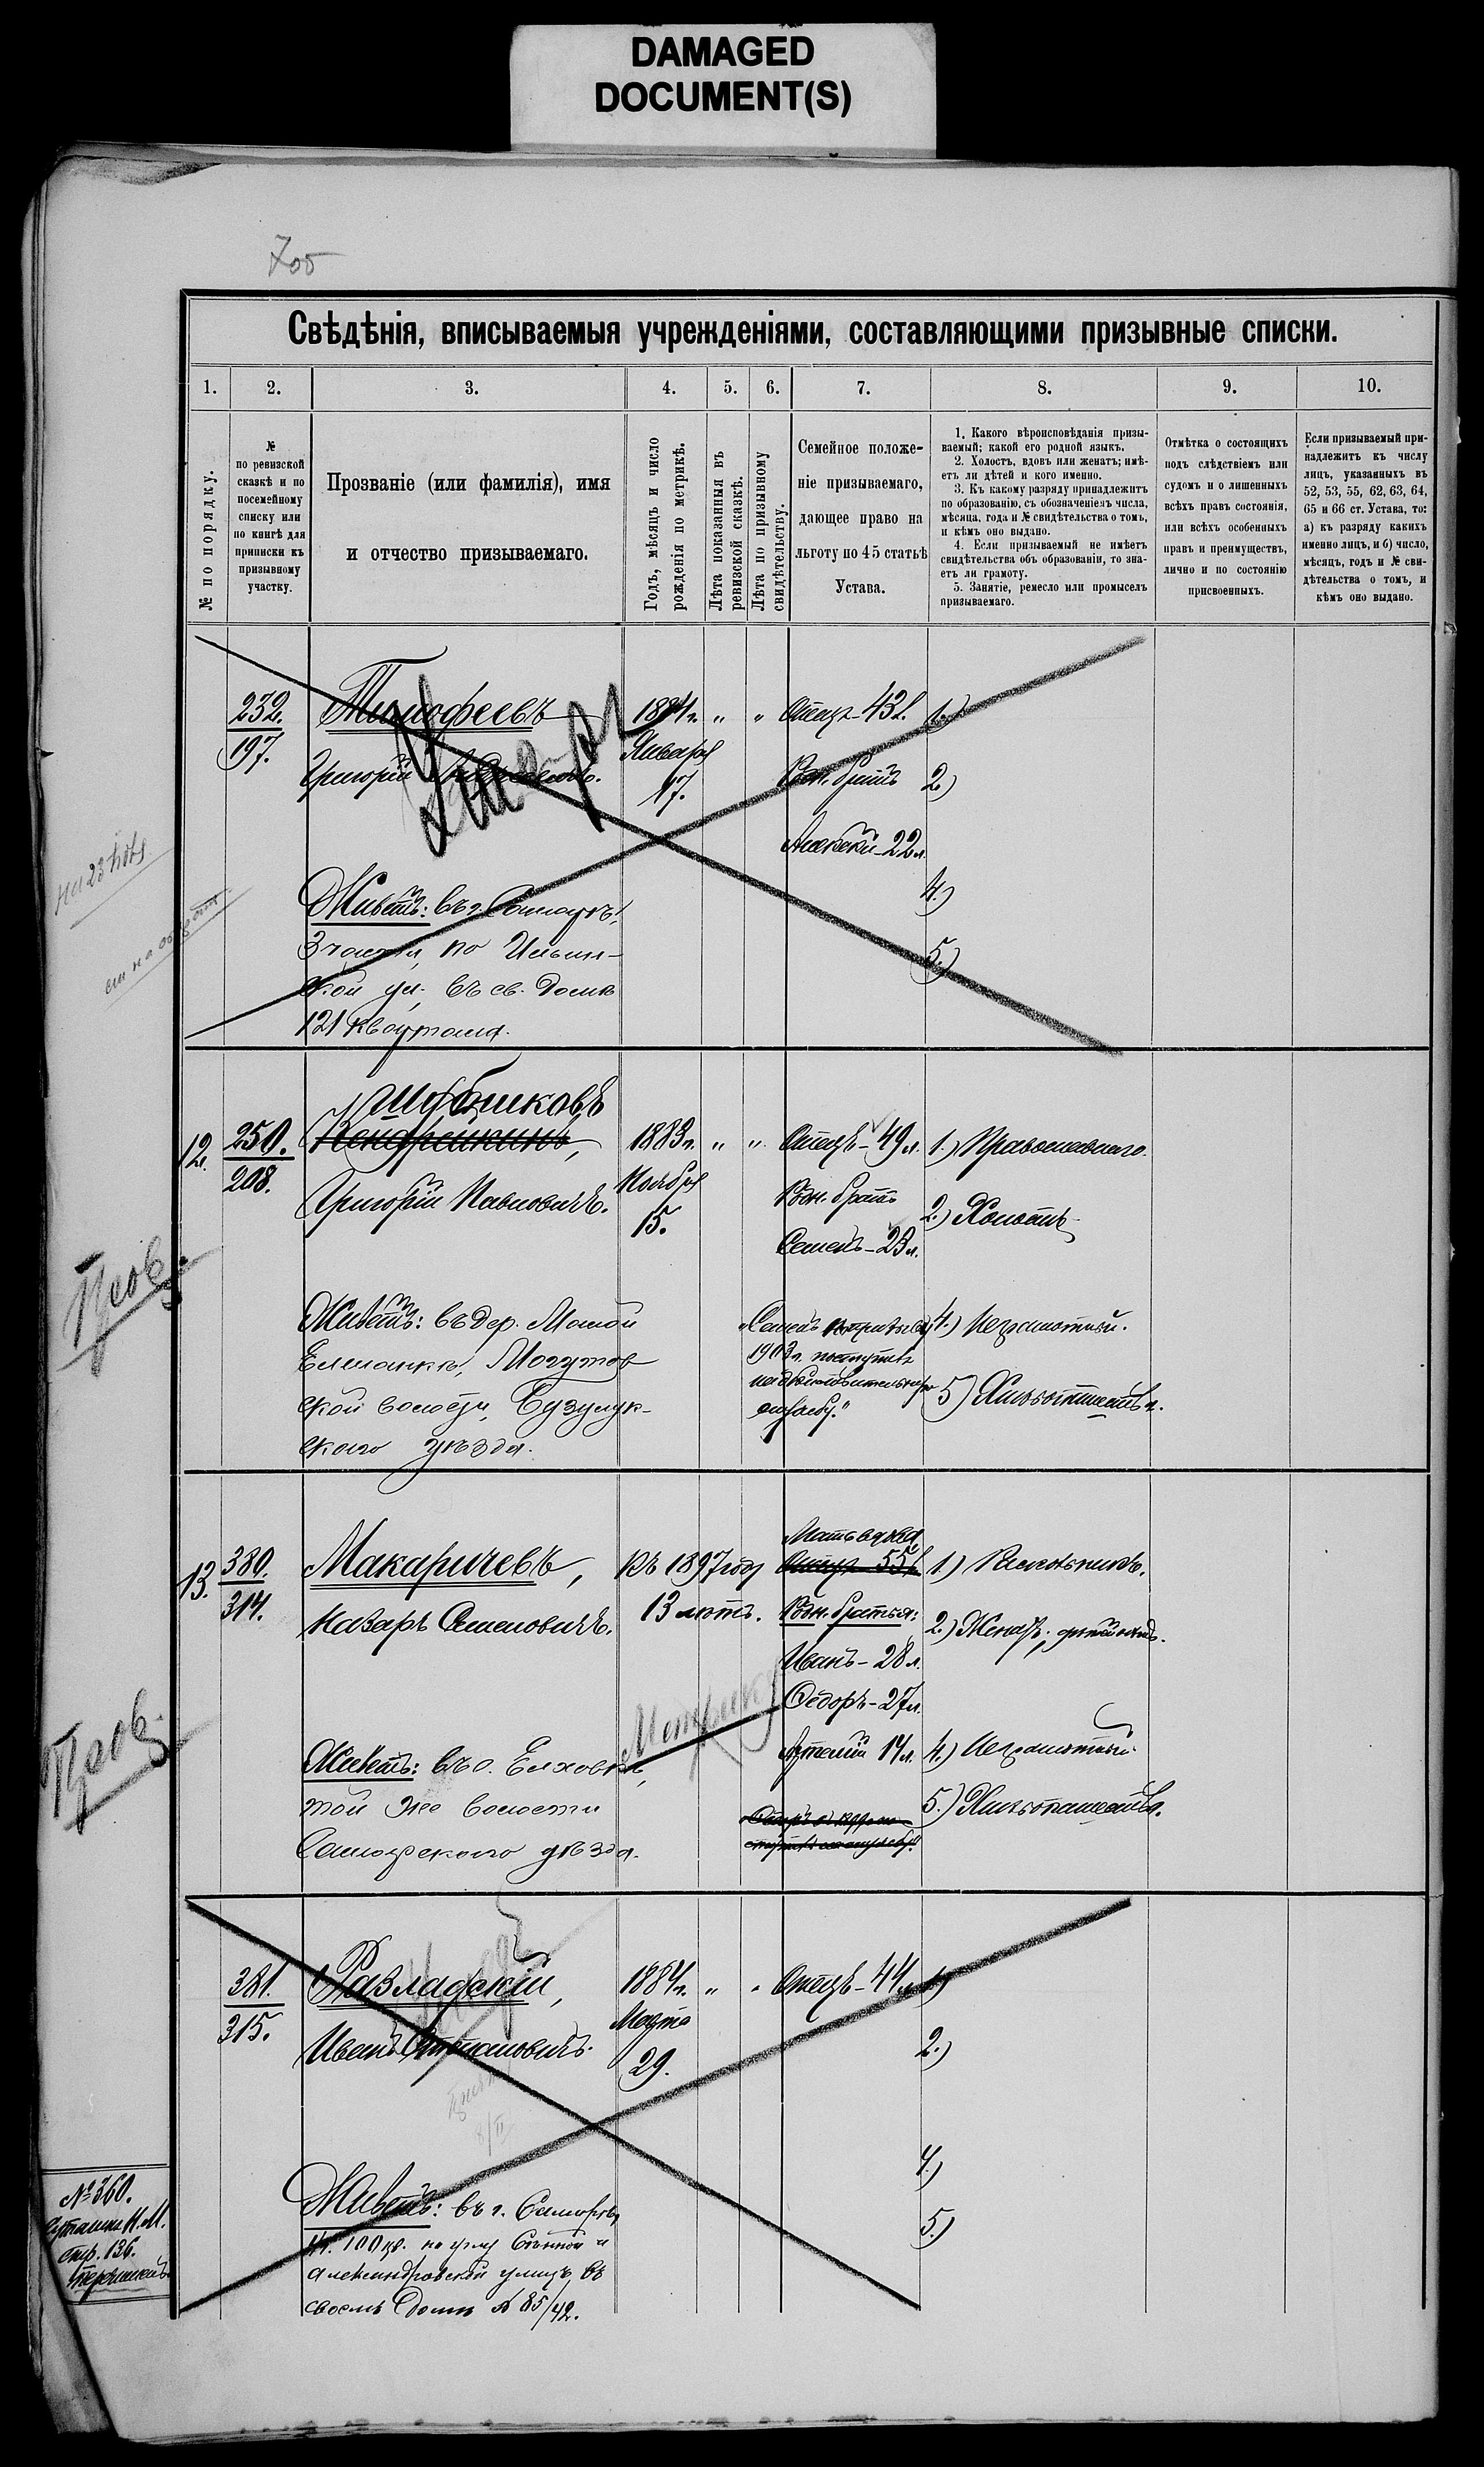 DAMAGED
DOCUMENT(S)
7об
Свѣдѣнія, вписываемыя учрежденіями, составляющими призывные списки.
1. 2. 3. 4. 5. 6. 7. 8. 9. 10.
№ по порядку.
№
по ревизской
сказкѣ и по
посемейному
списку или
по книгѣ для
приписки къ
призывному
участку.
Прозваніе (или фамилія), имя
и отчество призываемаго.
Годъ, мѣсяцъ и число
рожденія по метрикѣ.
Лѣта показанныя въ
ревизской сказкѣ.
Лѣта по призывному
свидѣтельству.
Семейное положе-
ніе призываемаго,
дающее право на
льготу по 45 статьѣ
Устава.
1. Какого вѣроисповѣданія призы-
ваемый; какой его родной языкъ.
2. Холостъ, вдовъ или женатъ; имѣ-
етъ ли дѣтей и кого именно.
3. Къ какому разряду принадлежитъ
по образованію, съ обозначеніемъ числа,
мѣсяца, года и № свидѣтельства о томъ,
и кѣмъ оно выдано.
4. Если призываемый не имѣетъ
свидѣтельства объ образованіи, то зна-
етъ ли грамоту.
5. Занятіе, ремесло или промыселъ
призываемаго.
Отмѣтка о состоящихъ
подъ слѣдствіемъ или
судомъ и о лишенныхъ
всѣхъ правъ состоянія,
или всѣхъ особенныхъ
правъ и преимуществъ,
лично и по состоянію
присвоенныхъ.
Если призываемый при-
надлежитъ къ числу
лицъ, указанныхъ въ
52, 53, 55, 62, 63, 64,
65 и 66 ст. Устава, то:
а) къ разряду какихъ
именно лицъ, и б) число,
мѣсяцъ, годъ и № сви-
дѣтельства о томъ, и
кѣмъ оно выдано.
232. Тимофеевъ 1884г. „ „ Отецъ-43л. 1.)
197. Григорій Января
17. Родн. братъ 2)
Алексѣй-22л.
4.)
5.)
Живетъ: въ г. Самарѣ,
3 части, по Ильин-
ской ул. въ св. домѣ
121 квартала.
12. 250. 1883г. „ „ Отецъ-49л. 1.) Православнаго.
208. Григорій Павловичъ. Ноября
15. Родн. братъ 2.) Холостъ.
Семенъ-23л.
Живетъ: въ дер. Малой „Семенъ 4.) Неграмотный.
Елшанкѣ, Могутов 1903г. поступилъ
ской волости, Бузулук- 5) Хлѣбопашество.
скаго уѣзда. службу."
13. 380. Макаричевъ, Къ 1897 году Отецъ 55л 1.) Раскольникъ.
314. Назаръ Семеновичъ. 13 лѣтъ. Родн. братья: 2.) Женатъ, дѣтей нѣтъ.
Иванъ-28л.
Федоръ-27л.
Метрику
14л. 4.) Неграмотный.
Живетъ: въ с. Елховкѣ,
той же волости 5.) Хлѣбопашество.
Самарскаго уѣзда.
381. 1884г. „ „ Отецъ-44л. 1)
315. Иванъ Степановичъ. Марта
29. 2.)
4.)
5.)
Живетъ: въ г. Самарѣ,
100 кв. на углу Сѣнной и
Александровской улицъ, въ
своемъ домѣ № 85/42.
№ 360.
Стр. 136.